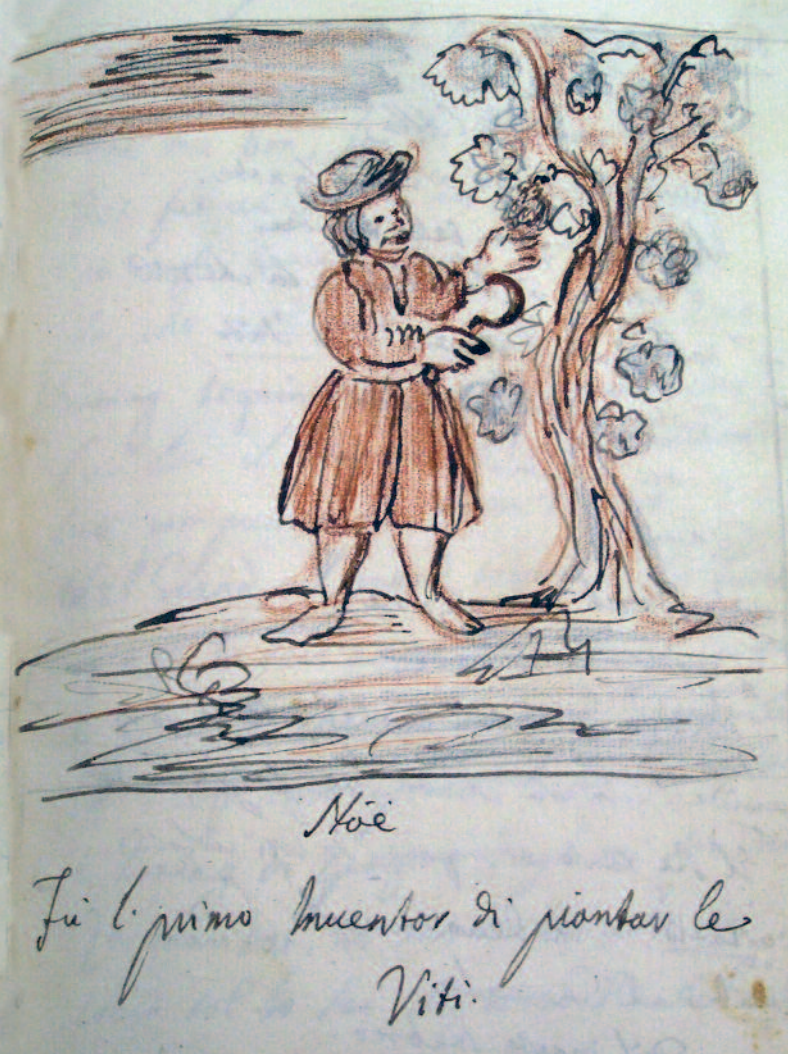 Nöè
Fù l. primo Inuentor di piantar le
Viti.